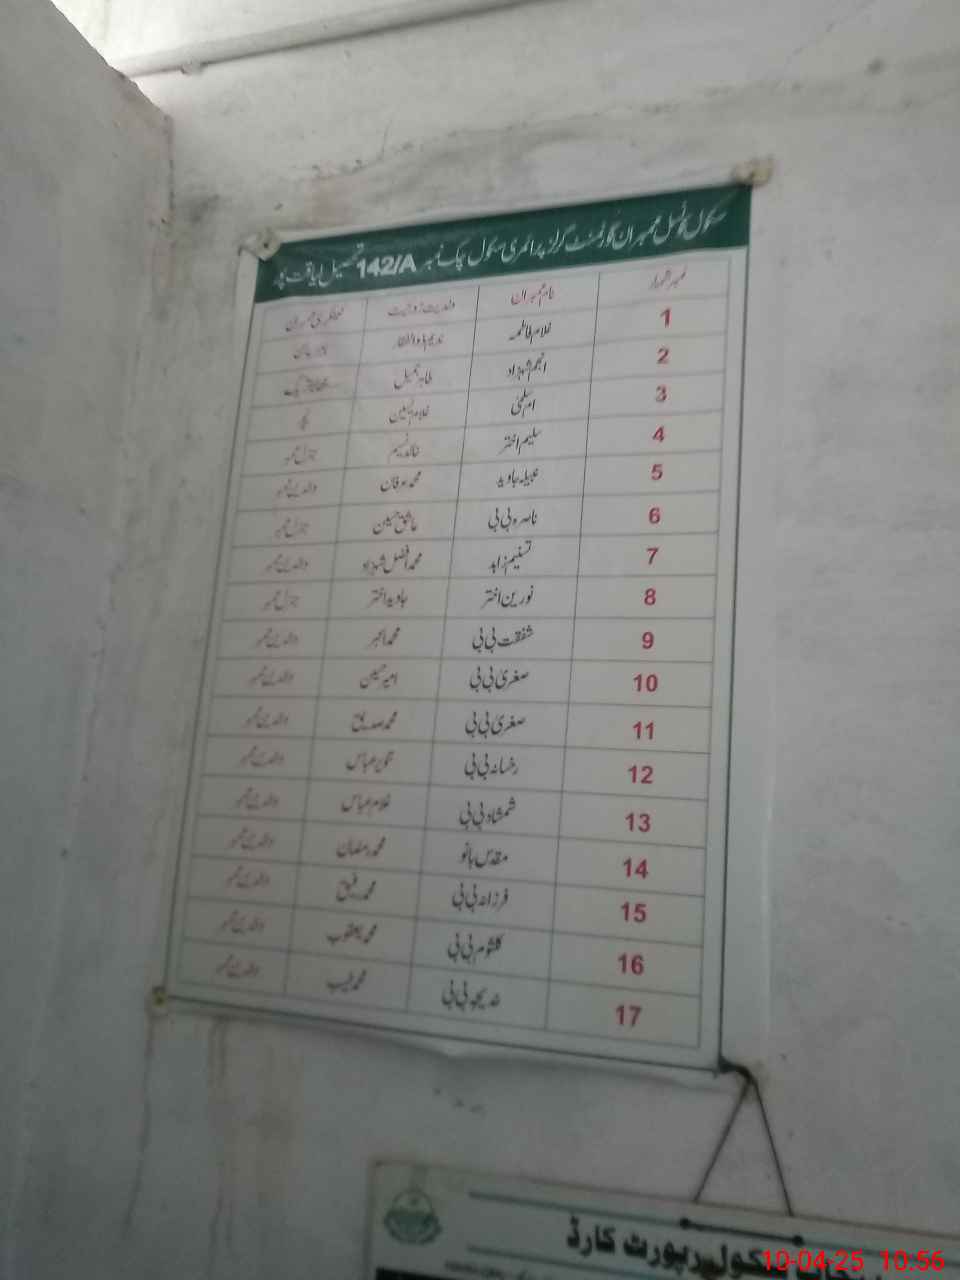 سکول کونسل ممبران گورنمنٹ گرلز پرائمری سکول چک نمبر 142/A تحصیل لیاقت پور
نمبر شمار نام ممبران ولدیت / زوجیت ممبران
1 غلام فاطمہ ندیم ذوالفقار
2 انجم شہزاد طاہر جمیل
3 ام سلمیٰ غلام یٰسین
4 سلیم اختر خالد نسیم جنرل ممبر
5 عبیلہ جاوید محمد عرفان والدین ممبر
6 ناصرہ بی بی عاشق حسین جنرل ممبر
7 تسنیم زاہد محمد افضل شہزاد والدین ممبر
8 نورین اختر جاوید اختر جنرل ممبر
9 شفقت بی بی محمد اکبر والدین ممبر
10 صغریٰ بی بی امیر حسین والدین ممبر
11 صغریٰ بی بی محمد صدیق والدین ممبر
12 رخسانہ بی بی تنویر عباس والدین ممبر
13 شمشاد بی بی غلام عباس والدین ممبر
14 مقدس بانو محمد رمضان والدین ممبر
15 فرزانہ بی بی محمد رفیق والدین ممبر
16 کلثوم بی بی محمد یعقوب والدین ممبر
17 خدیجہ بی بی محمد طیب والدین ممبر
سکول رپورٹ کارڈ
10-04-25 10:56